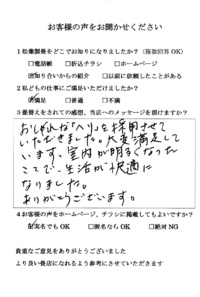 お客様の声をお聞かせください
1松葉製畳をどこでお知りになりましたか？（複数回答OK）
□電話帳 □折込チラシ □ホームページ
☑知り合いからの紹介 □以前に依頼したことがある
2私どもの仕事にご満足いただけましたか？
☑満足 □普通 □不満
3畳替えをされての感想、当店へのメッセージを頂けますか？
おしゃれな「へり」を採用させて
いただきました。大変満足して
います。室内が明るくなった
ことで、生活が快適に
なりました。
ありがとうございます。
4お客様の声をホームページ、チラシに掲載してもよいですか？
☑実名でもOK □匿名ならOK □絶対NG
貴重なご意見をありがとうございました
より良い畳店になれるよう参考にさせていただきます